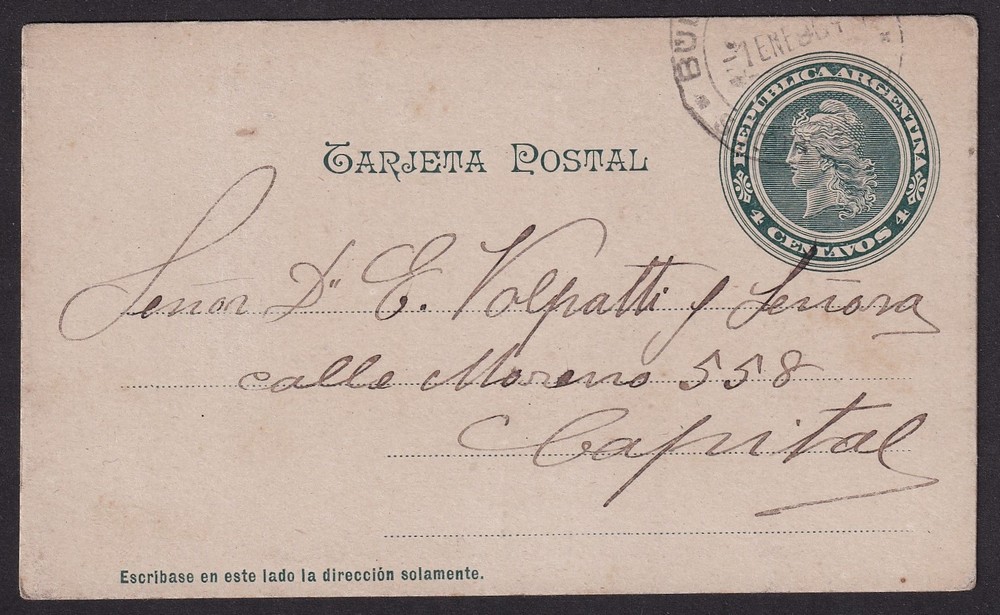 1 ENE
REPUBLICA ARGENTINA
4 CENTAVOS 4
TARJETA POSTAL
Señor Dn E. Volpatti y Señora
calle Moreno 558
Capital
Escríbase en este lado la dirección solamente.